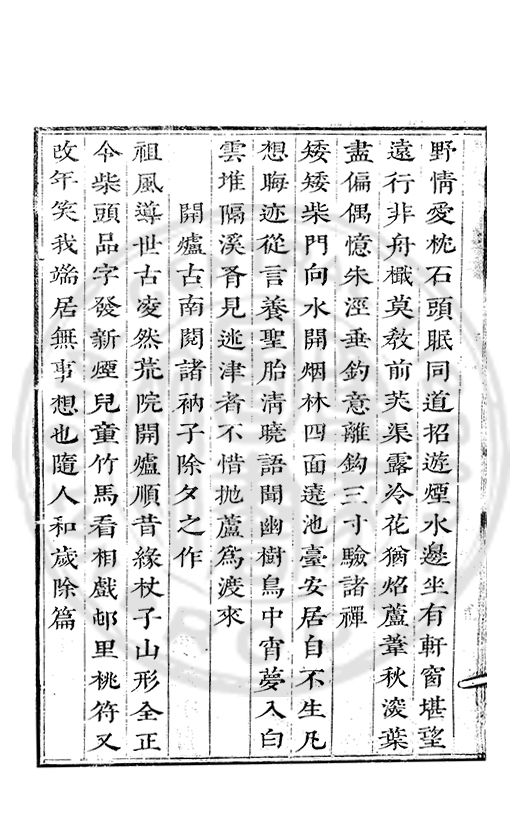 野情愛枕石頭眠同道招遊煙水邊坐有軒窗堪望
遠行非舟檝莫教前芙渠露冷花猶焰蘆葦秋深葉
盡偏偶憶朱涇垂釣意離鈎三寸驗諸禪
矮矮柴門向水開烟林四面遶池臺安居自不生凡
想晦迹從言養聖胎清曉語聞幽樹鳥中宵夢入白
雲堆隔溪胥見逃津者不惜拋蘆為渡來
開爐古南閱諸衲子除夕之作
祖風導世古凌然荒院開爐順昔緣杖子山形全正
令柴頭品字發新煙兒童竹馬看相戲邨里桃符又
改年笑我端居無事想也隨人和歲除篇